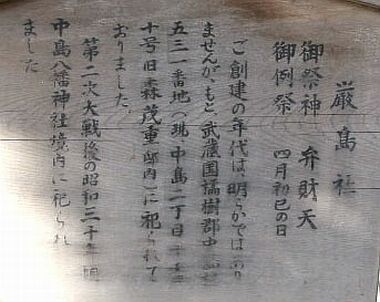 厳島社
御祭神 弁財天
御例祭 四月初巳の日
ご創建の年代は、明らかではあり
ませんが、もと、武蔵国橘樹郡中
五三一番地(現、中島二丁目
十号旧森茂重邸内)に祀られて
おりました。
第二次大戦後の昭和三十年頃
中島八幡神社境内に祀られ
ました